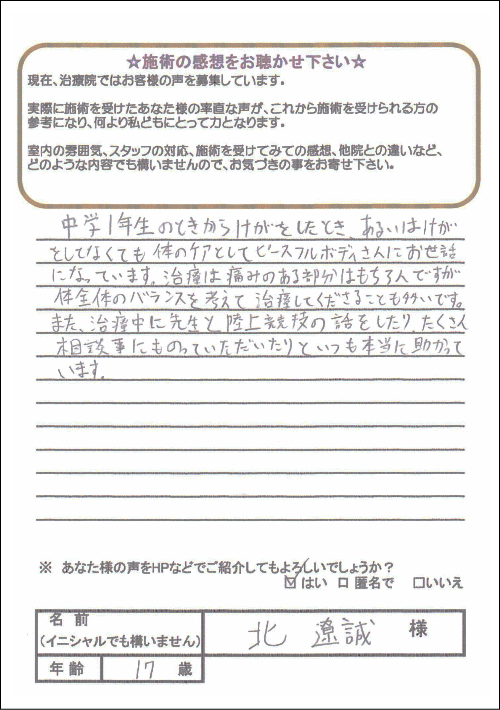 ☆施術の感想をお聴かせ下さい☆
現在、治療院ではお客様の声を募集しています。
実際に施術を受けたあなた様の率直な声が、これから施術を受けられる方の
参考になり、何より私どもにとって力となります。
室内の雰囲気、スタッフの対応、施術を受けてみての感想、他院との違いなど、
どのような内容でも構いませんので、お気づきの事をお寄せ下さい。
中学1年生のときからけがをしたとき、あるいはけが
をしてなくても体のケアとしてピースフルボディさんにお世話
になっています。治療は痛みのある部分はもちろんですが
体全体のバランスを考えて治療してくださることも多いです。
また、治療中に先生と陸上競技の話をしたり、たくさん
相談事にものっていただいたりといつも本当に助かって
います。
※ あなた様の声をHPなどでご紹介してもよろしいでしょうか?
☑はい □匿名で □いいえ
名前
(イニシャルでも構いません) 北 遼誠 様
年齢 17 歳